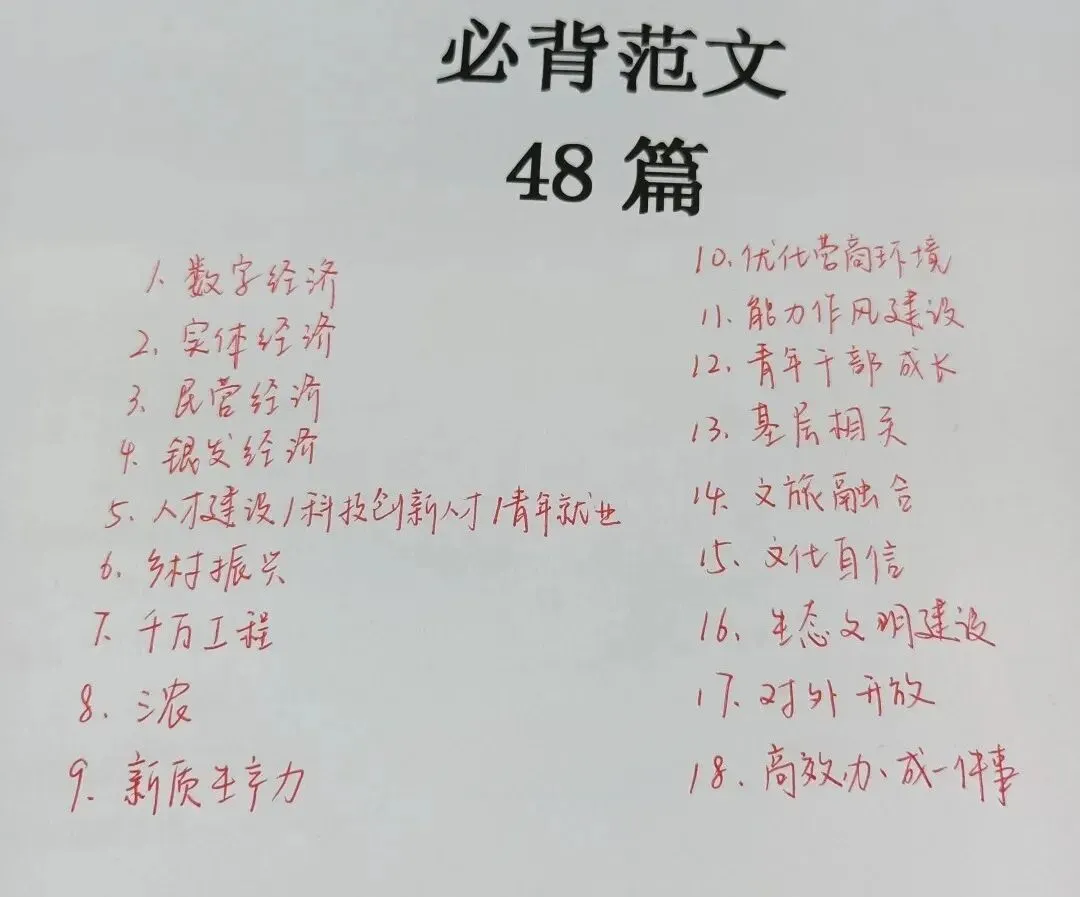 必背范文
48 篇
1. 数字经济
2. 实体经济
3. 民营经济
4. 银发经济
5. 人才建设/科技创新人才/青年就业
6. 乡村振兴
7. 千万工程
8. 三农
9. 新质生产力
10. 优化营商环境
11. 能力作风建设
12. 青年干部成长
13. 基层相关
14. 文旅融合
15. 文化自信
16. 生态文明建设
17. 对外开放
18. 高效办、成一件事